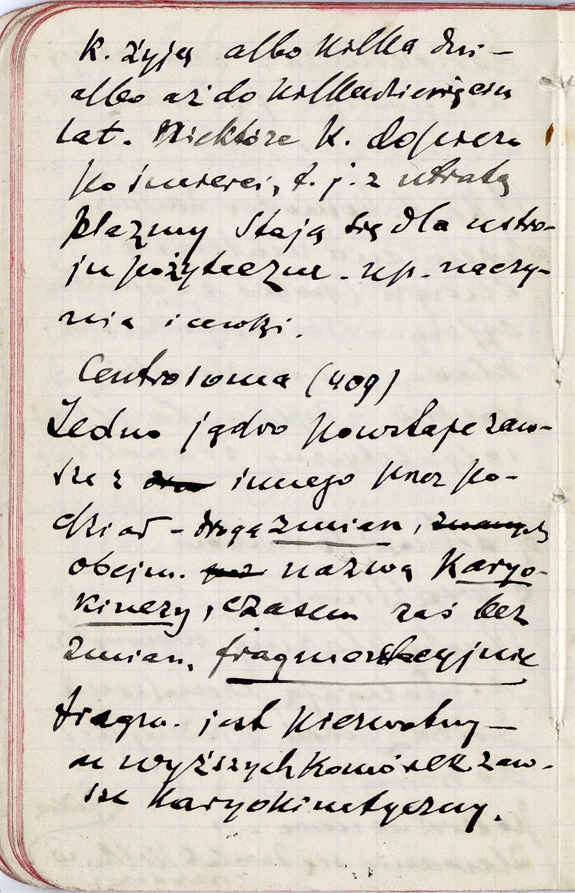 K. żyją albo kilka dni –
albo aż do kilkudziesięciu
lat. Niektóre K. dopiero
po śmierci, t. j. z utratą
plazmy stają się dla ustro-
ju pożyteczne. np. naczy-
nia i cewki.
Centrosoma (409)
Jedno jądro powstaje zaw-
sze z innego przez po-
dział – drogą zmian,
objęt. nazwą Karyo-
kinezy, czasem zaś bez
zmian, fragmentacyjnie
fragm. jest pierwotny –
u wyższych komórek zaw-
sze karyokinetyczny.